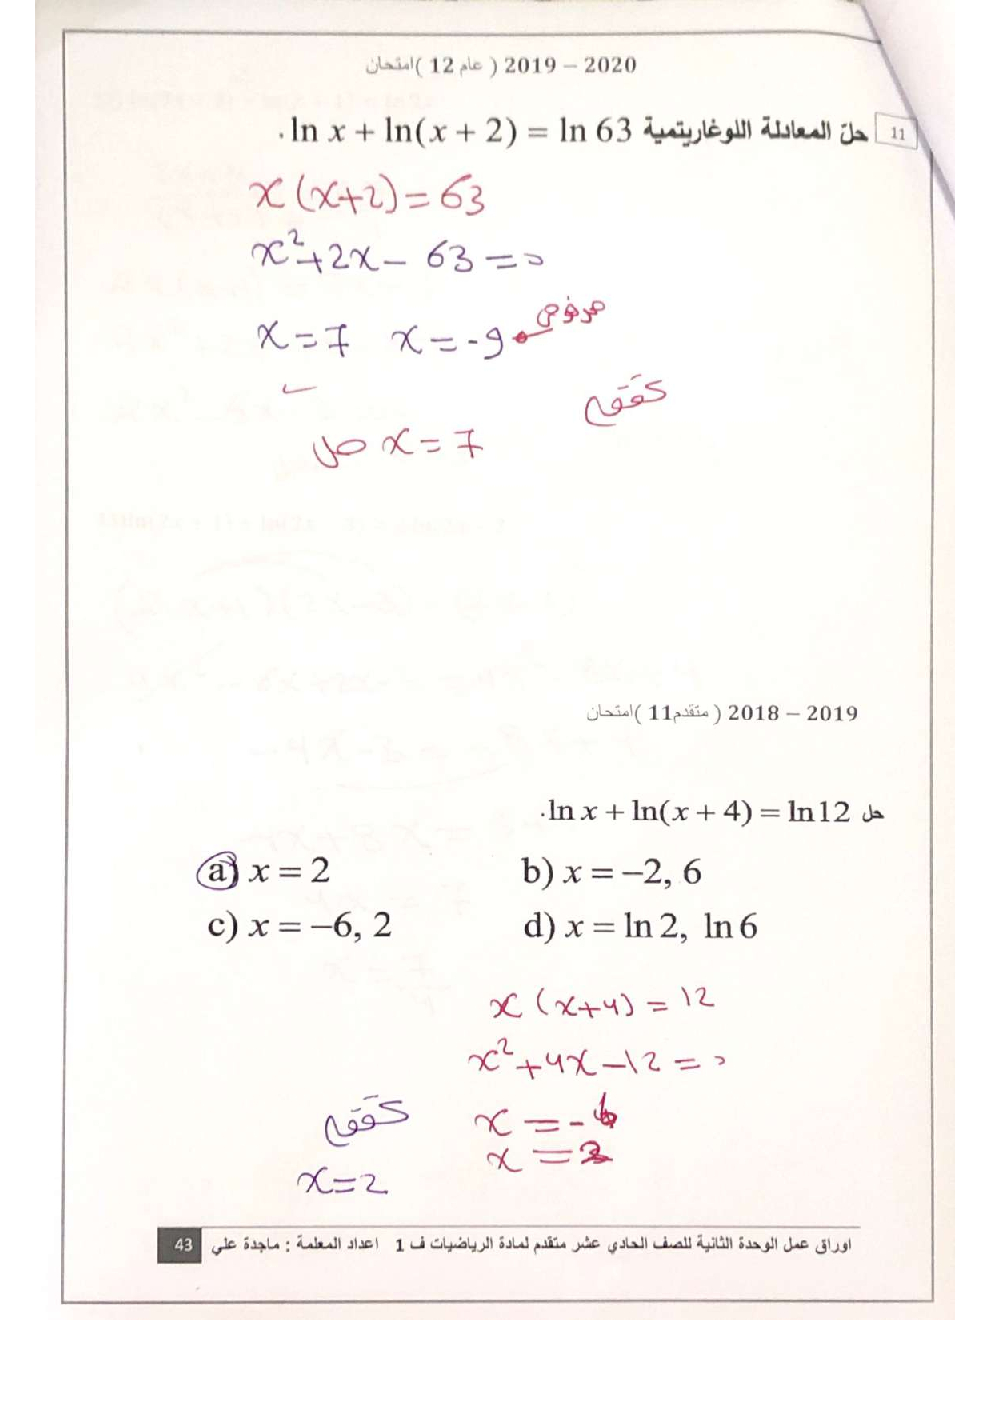 امتحان( عام 12 ) 2019 – 2020
11 حلّ المعادلة اللوغاريتمية ln x + ln(x + 2) = ln 63.
x(x+2)=63
x²+2x-63=0
x=7 x=-9 مرفوض
تحقق
حل x=7
امتحان( متقدم11 ) 2018 – 2019
حل ln x + ln(x + 4) = ln12.
a) x = 2 b) x = −2, 6
c) x = −6, 2 d) x = ln 2, ln 6
x(x+4)=12
x²+4x-12=0
x=-6
x=2
تحقق
x=2
اوراق عمل الوحدة الثانية للصف الحادي عشر متقدم لمادة الرياضيات ف 1 اعداد المعلمة : ماجدة علي 43